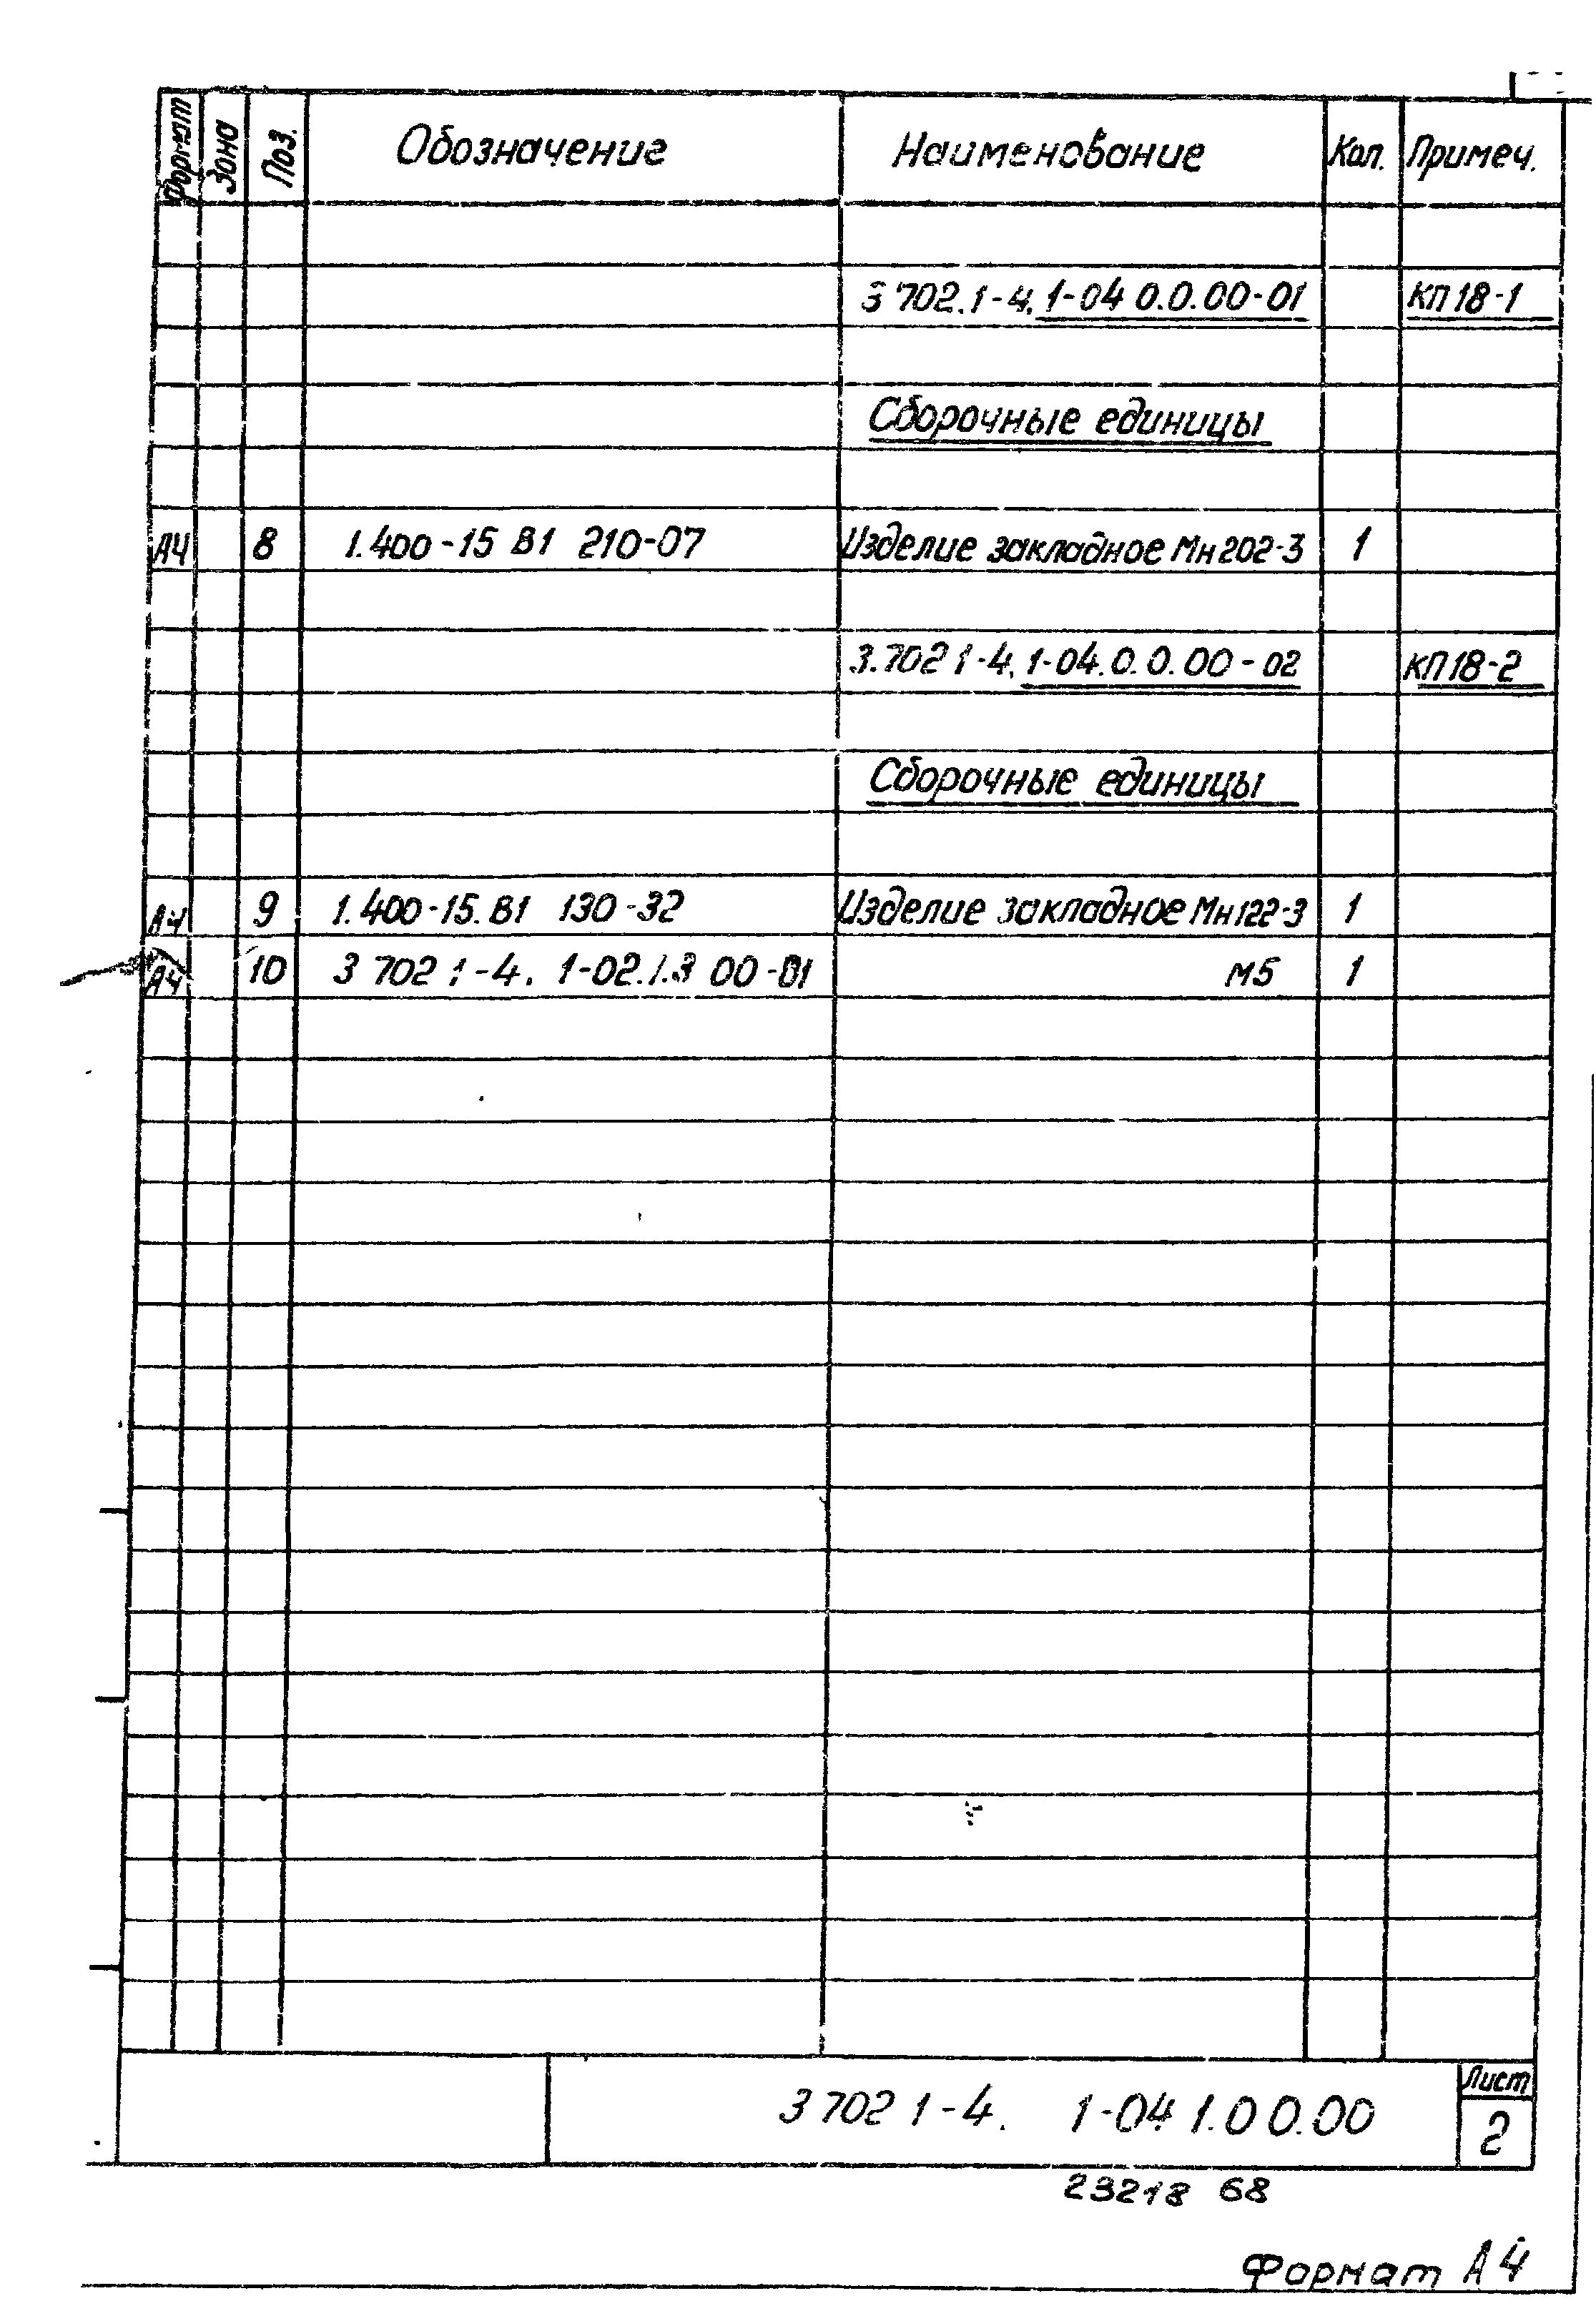 Формат Зона Поз. Обозначение Наименование Кол. Примеч.
3 702.1-4. 1-04 0.0.00-01 КП18-1
Сборочные единицы
А4 8 1.400-15 В1 210-07 Изделие закладное Мн202-3 1
3.702 1-4. 1-04.0.0.00-02 КП18-2
Сборочные единицы
А4 9 1.400-15.В1 130-32 Изделие закладное Мн122-3 1
А4 10 3 702 1-4. 1-02.1.3 00-01 М5 1
3 702 1-4. 1-04 1.0 0.00
Лист
2
23218 68
Формат А4